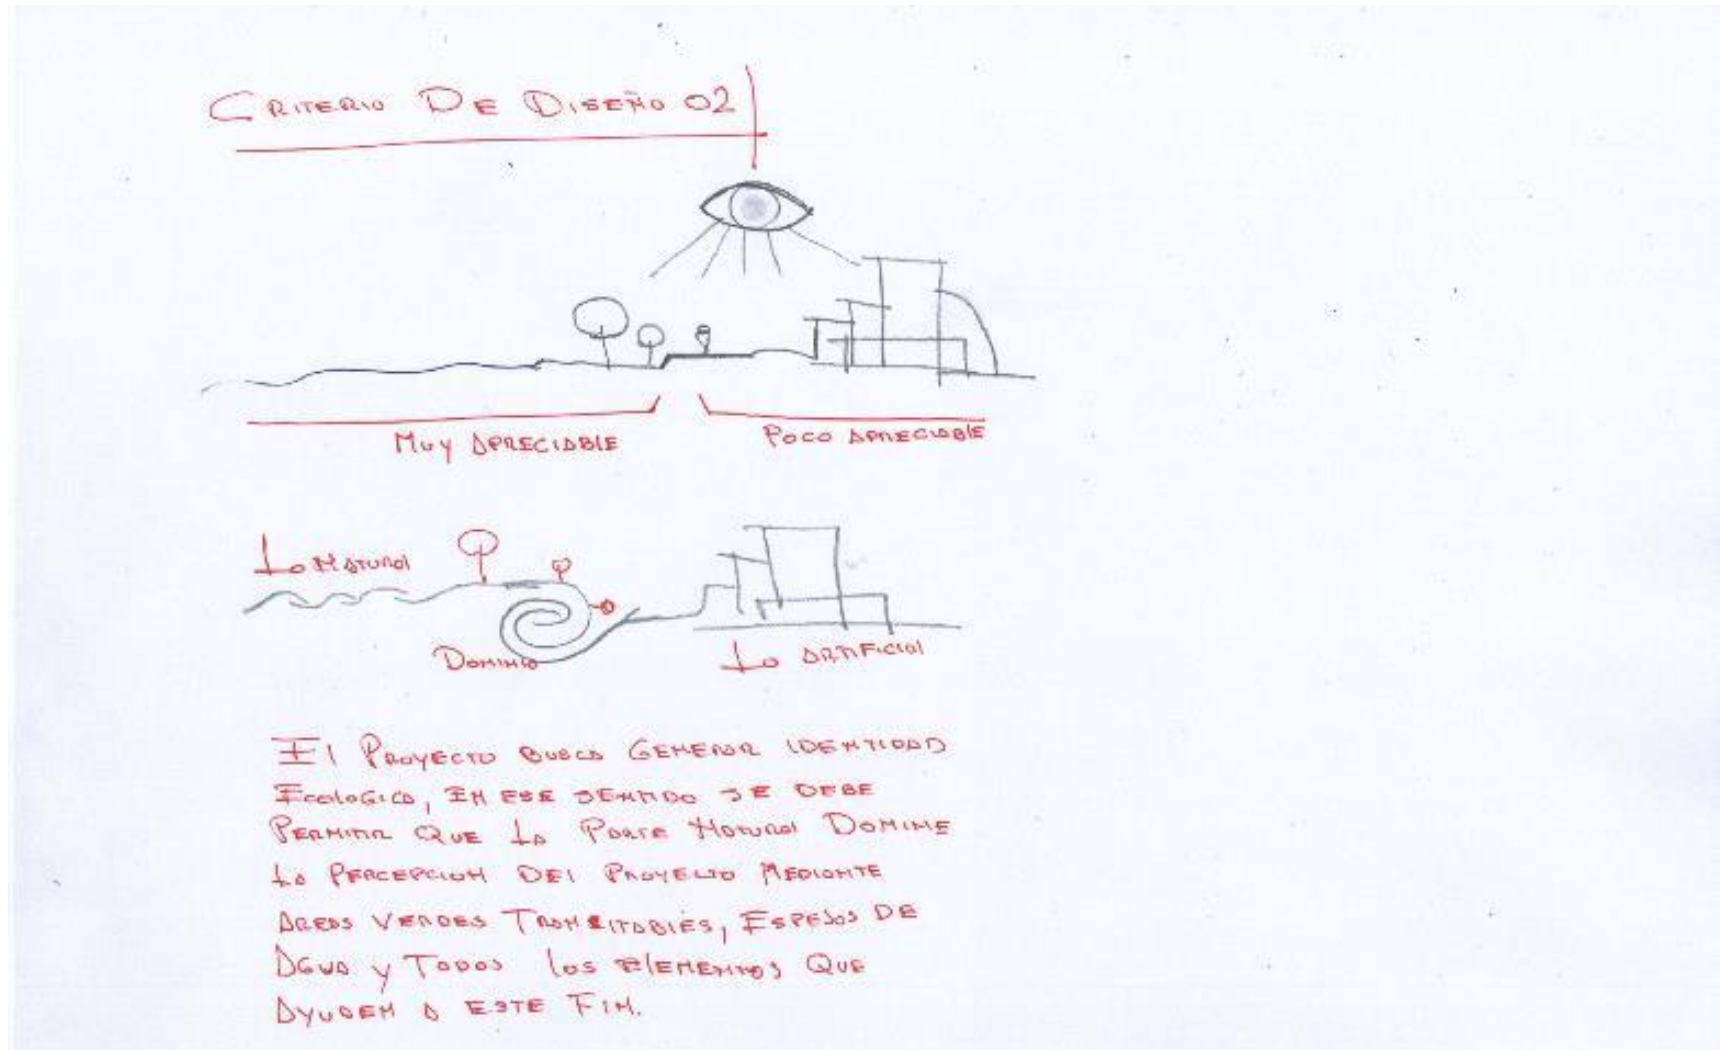 CRITERIO DE DISEÑO 02
MUY APRECIABLE
POCO APRECIABLE
LO NATURAL
DOMINIO
LO ARTIFICIAL
EL PROYECTO BUSCA GENERAR IDENTIDAD
ECOLOGICA, EN ESE SENTIDO SE DEBE
PERMITIR QUE LA PARTE NATURAL DOMINE
LA PERCEPCION DEL PROYECTO MEDIANTE
AREAS VERDES TRANSITABLES, ESPEJOS DE
AGUA Y TODOS LOS ELEMENTOS QUE
AYUDEN A ESTE FIN.